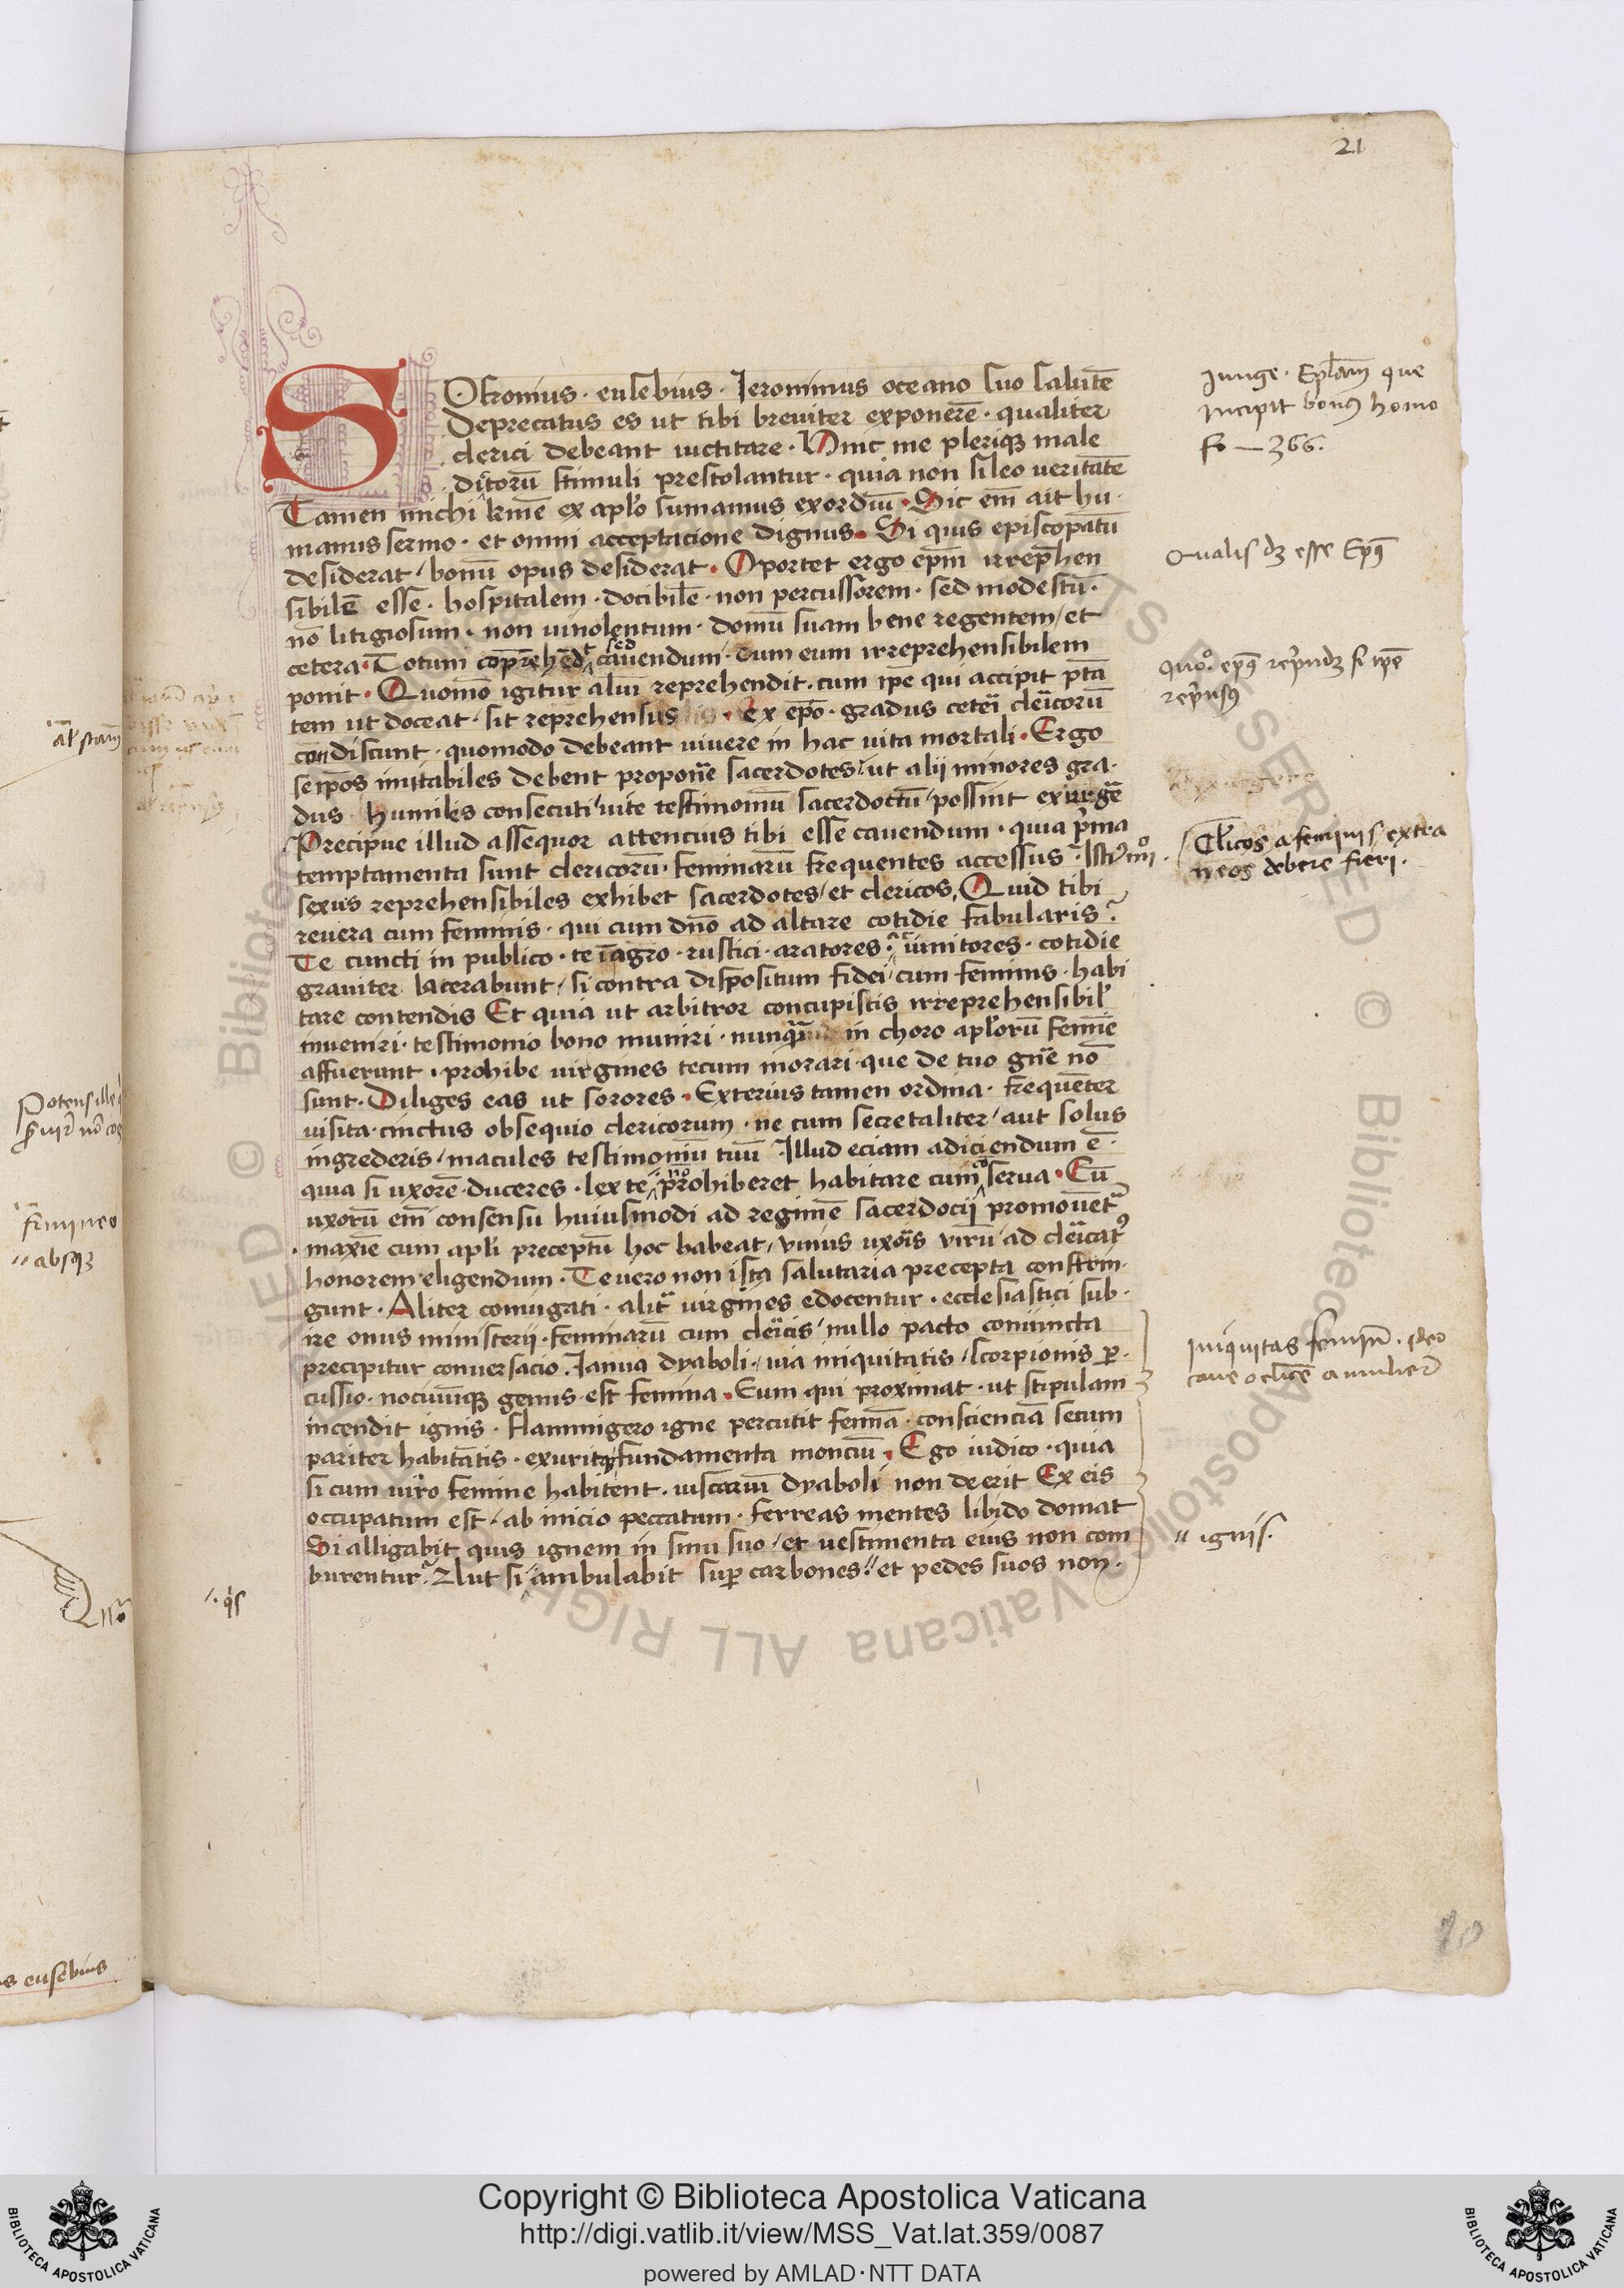 21
SOfronius · eusebius · Jeronimus oceano suo salutē
Deprecatus es ut tibi breuiter exponerē · qualiter
clerici debeant uictitare · Hinc me plerique male
dictorū stimuli prestolantur · quia non sileo ueritatē
Tamen michi ex aplo sumamus exordiū · Sic em̄ ait hu
manus sermo · et omni acceptacione dignus · Si quis episcopatū
desiderat / bonū opus desiderat · Oportet ergo ep̄m irrep̄hen
sibilē esse · hospitalem · docibilē · non percussorem · sed modestū ·
nō litigiosum · non uinolentum · domū suam bene regentem / et
cetera · Totum cop̄rehēd sed cauendum · dum eum irreprehensibilem
ponit · Quomō igitur aliū reprehendit · cum ip̄e qui accipit p̄tā
tem ut doceat · sit reprehensus · ex ep̄o · gradus ceteri clericorū
condiscunt · quomodo debeant uiuere in hac uita mortali · Ergo
seip̄os imitabiles debent proponere sacerdotes / ut alij minores gra
dus humiles consecuti / uite testimoniū sacerdotū / possint exurgere
Precipue illud assequor attencius tibi esse cauendum · quia prima
temptamenta sunt clericorū · feminarū frequentes accessus · Isti
sexus reprehensibiles exhibet sacerdotes / et clericos, Quid tibi
reuera cum feminis · qui cum dn̄o ad altare cotidie fabularis?
Te cuncti in publico · te ī agro · rustici · aratores · uinitores · cotidie
grauiter lacerabunt / si contra dispositum fidei / cum feminis · habi
tare contendis Et quia ut arbitror concupiscis irreprehensibil
inueniri · testimonio bono muniri · nunquam in choro aplorū femine
affuerunt · prohibe uirgines tecum morari · que de tuo gn̄e nō
sunt · Diliges eas ut sorores · Exterius tamen ordina · frequēter
uisita · cinctus obsequio clericorum · ne cum secretaliter / aut solus
ingrederis / macules testimoniū tuū Illud eciam adiciendum ē ·
quia si uxorē duceres · lex te nō prohiberet habitare cum serua · Cū
uxorū em̄ consensu huiusmodi ad regimē sacerdocij promouēt
maxīe cum apli preceptū hoc habeat / unius uxoris virū / ad clericat
honorem eligendum · Te uero non ista salutaria precepta constrin
gunt · Aliter coniugati · alit uirgines edocentur · ecclesiastici sub
ire onus ministerij · feminarū cum clericis / nullo pacto coniuncta
precipitur conuersacio Janua dyaboli / uia iniquitatis / scorpionis per
cussio · nociuūque genus est femina · Cum qui proximat · ut stipulam
incendit ignis · flammigero igne percutit femīa · conscienciā secum
pariter habitātis · exuritque fundamenta monciū · Ego iudico · quia
si cum uiro femine habitent · uiscariū dyaboli non deerit Ex eis
occupatum est / ab inicio peccatum · ferreas mentes libido domat
Si alligabit quis ignem in sinu suo / et uestimenta eius non com
burentur? Aut si ambulabit sup carbones / et pedes suos non ·
Junge · Ep̄lam que
incipit bonus homo
fo — 366.
Qualis dz esse Ep̄s
Quo° ep̄s rep̄ndz si ip̄e
rep̄nsus
Cl̄icos a feminis extra
neos debere fieri ·
iniquitas femin̄ · ideo
caue o cl̄ice a mulier
" ignis.
/· q̇s
al stam
Potens ille
femineo
" absque
us eusebius
10
Copyright © Biblioteca Apostolica Vaticana
http://digi.vatlib.it/view/MSS_Vat.lat.359/0087
powered by AMLAD·NTT DATA
BIBLIOTECA APOSTOLICA VATICANA
BIBLIOTECA APOSTOLICA VATICANA